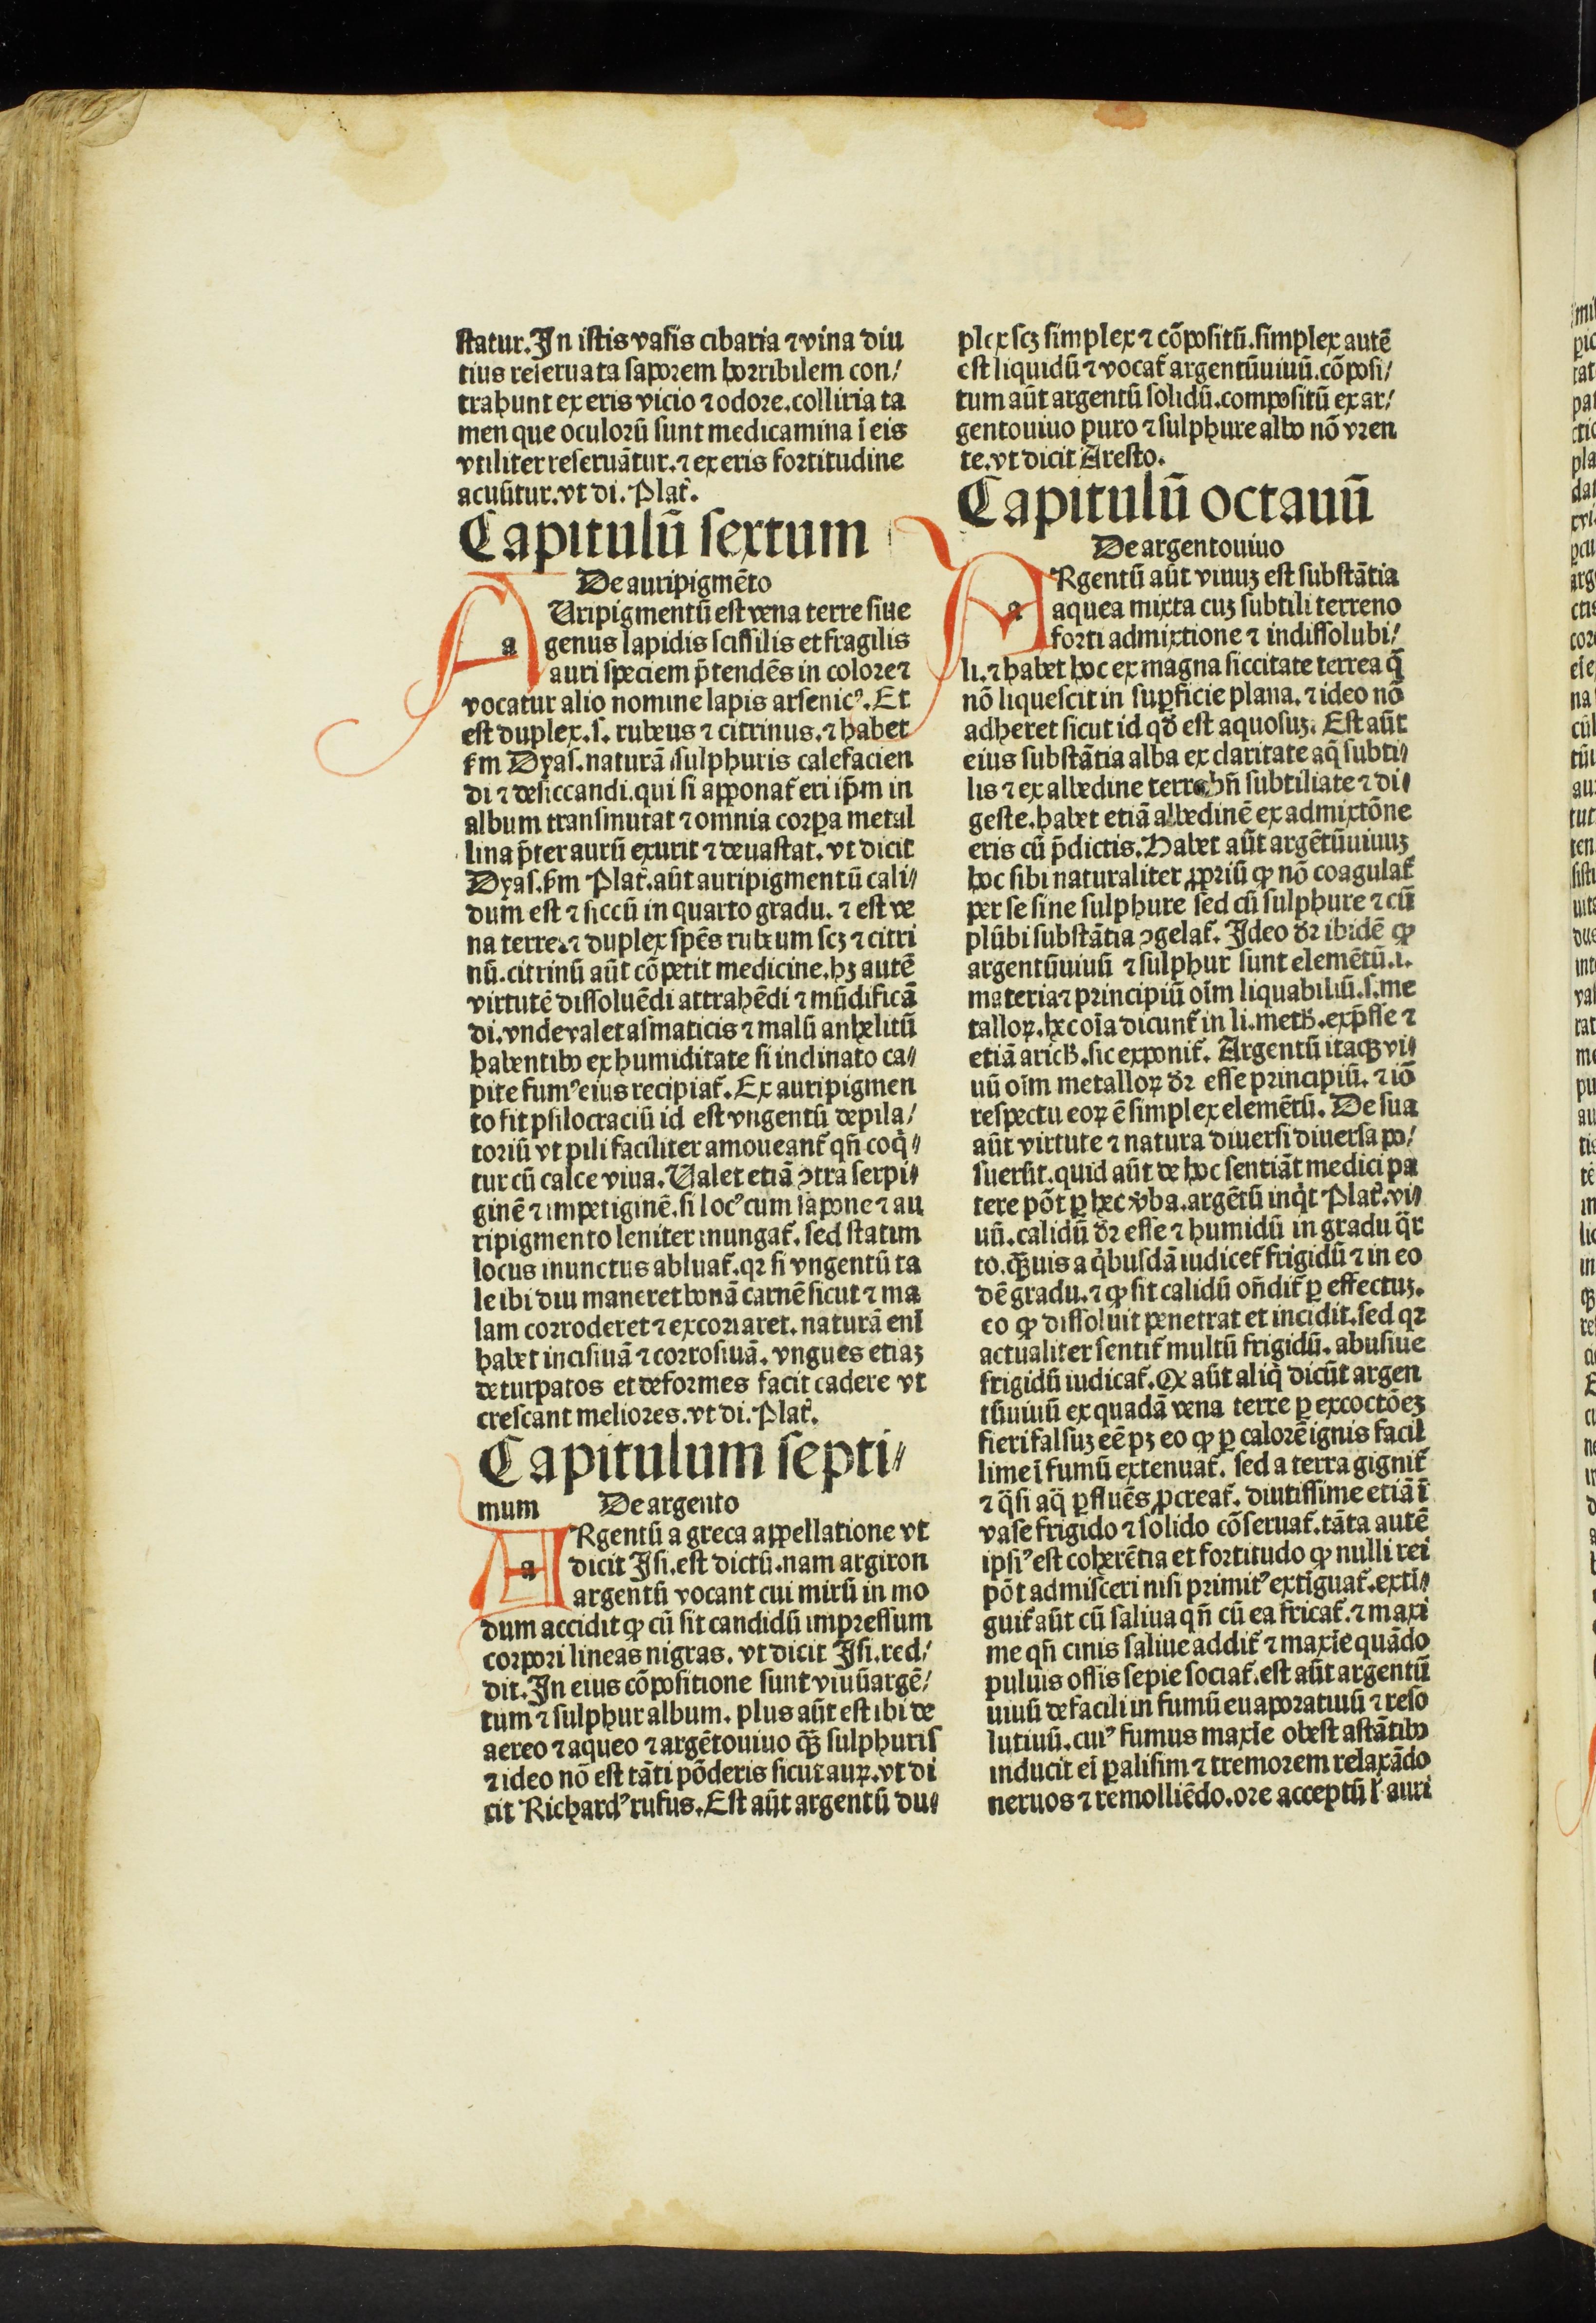 ſtatur. In iſtis vaſis cibaria ⁊ vina diu
tius reſeruata ſaporem horribilem con/
trahunt ex eris vicio ⁊ odore. colliria ta
men que oculorū ſunt medicamina ī eis
vtiliter reſeruātur. ⁊ ex eris fortitudine
acuūtur. vt di. Plať.
Capitulū ſextum
De auripigmēto
aUripigmentū eſt vena terre ſiue
genus lapidis ſciſſilis et fragilis
auri ſpeciem p̄tendēs in colore ⁊
vocatur alio nomine lapis arſenicꝰ. Et
eſt duplex. ſ. rubeus ⁊ citrinus. ⁊ habet
ẜm Dyaſ. naturā ſulphuris calefacien
di ⁊ deſiccandi. qui ſi apponať eri ip̄m in
album tranſmutat ⁊ omnia corꝑa metal
lina p̄ter aurū exurit ⁊ deuaſtat. vt dicit
Dyaſ. ẜm Plať. aūt auripigmentū cali/
dum eſt ⁊ ſiccū in quarto gradu. ⁊ eſt ve
na terre. ⁊ duplex ſpēs rubeum ſcꝫ ⁊ citri
nū. citrinū aūt cōpetit medicine. hꝫ autē
virtutē diſſoluēdi attrahēdi ⁊ mūdificā
di. vnde valet aſmaticis ⁊ malū anhelitū
habentibꝰ ex humiditate ſi inclinato ca/
pite fumꝰ eius recipiať. Ex auripigmen
to fit pſilocraciū id eſt vngentū depila/
toriū vt pili faciliter amoueanť qn̄ coq̇̄/
tur cū calce viua. Ualet etiā ꝯtra ſerpi/
ginē ⁊ impetiginē. ſi locꝰ cum ſapone ⁊ au
ripigmento leniter inungať. ſed ſtatim
locus inunctus abluať. qꝛ ſi vngentū ta
le ibi diu maneret bonā carnē ſicut ⁊ ma
lam corroderet ⁊ excoriaret. naturā enī
habet inciſiuā ⁊ corroſiuā. vngues etiaꝫ
deturpatos et deformes facit cadere vt
creſcant meliores. vt di. Plať.
Capitulum ſepti/
mum De argento
aRgentū a greca appellatione vt
dicit Iſi. eſt dictū. nam argiron
argentū vocant cui mirū in mo
dum accidit ꝙ cū ſit candidū impreſſum
corpori lineas nigras. vt dicit Iſi. red/
dit. In eius cōpoſitione ſunt viuū argē/
tum ⁊ ſulphur album. plus aūt eſt ibi de
aereo ⁊ aqueo ⁊ argētouiuo q̄ꝫ ſulphuris
⁊ ideo nō eſt tāti pōderis ſicut auꝝ. vt di
cit Richardꝰ rufus. Eſt aūt argentū du/
plex ſcꝫ ſimplex ⁊ cōpoſitū. ſimplex autē
eſt liquidū ⁊ vocať argentūuiuū. cōpoſi/
tum aūt argentū ſolidū. compoſitū ex ar/
gentouiuo puro ⁊ ſulphure albo nō vren
te. vt dicit Areſto.
Capitulū octauū
De argentouiuo
aRgentū aūt viuuꝫ eſt ſubſtātia
aquea mixta cuꝫ ſubtili terreno
forti admixtione ⁊ indiſſolubi/
li. ⁊ habet hoc ex magna ſiccitate terrea q̄
nō liqueſcit in ſuꝑficie plana. ⁊ ideo nō
adheret ſicut id qđ eſt aquoſuꝫ. Eſt aūt
eius ſubſtātia alba ex claritate aq̄ ſubti/
lis ⁊ ex albedine terre bn̄ ſubtiliate ⁊ di/
geſte. habet etiā albedinē ex admixtōne
eris cū p̄dictis. Habet aūt argētūuiuuꝫ
hoc ſibi naturaliter ꝓpriū ꝙ nō coagulať
per ſe ſine ſulphure ſed cū ſulphure ⁊ cū
plūbi ſubſtātia ꝯgelať. Ideo đꝛ ibidē ꝙ
argentūuiuū ⁊ ſulphur ſunt elemētū. i.
materia ⁊ principiū oīm liquabiliū. ſ. me
talloꝝ. hec oīa dicunť in li. metħ. exp̄ſſe ⁊
etiā aricħ. ſic exponiť. Argentū itaqꝫ vi/
uū oīm metalloꝝ đꝛ eſſe principiū. ⁊ iō
reſpectu eoꝝ ē ſimplex elemētū. De ſua
aūt virtute ⁊ natura diuerſi diuerſa po/
ſuerūt. quid aūt de hoc ſentiāt medici pa
tere pōt ꝑ hec v̾ba. argētū inq̇t Plať. vi/
uū. calidū đꝛ eſſe ⁊ humidū in gradu q̈r
to. q̄ꝫuis a q̇buſdā iudiceť frigidū ⁊ in eo
dē gradu. ⁊ ꝙ ſit calidū on̄diť ꝑ effectuꝫ.
eo ꝙ diſſoluit penetrat et incidit. ſed qꝛ
actualiter ſentiť multū frigidū. abuſiue
frigidū iudicať. Qđ aūt aliq̇ dicūt argen
tūuiuū ex quadā vena terre ꝑ excoctōeꝫ
fieri falſuꝫ eē pꝫ eo ꝙ ꝑ calorē ignis facil
lime ī fumū extenuať. ſed a terra gigniť
⁊ q̈ſi aq̄ ꝑfluēs ꝓcreať. diutiſſime etiā ī
vaſe frigido ⁊ ſolido cōſeruať. tāta autē
ipſiꝰ eſt coherētia et fortitudo ꝙ nulli rei
pōt admiſceri niſi primitꝰ extīguať. extī/
guiť aūt cū ſaliua qn̄ cū ea fricať. ⁊ maxi
me qn̄ cinis ſaliue addiť ⁊ maxīe quādo
puluis oſſis ſepie ſociať. eſt aūt argentū
uiuū de facili in fumū euaporatiuū ⁊ reſo
lutiuū. cuiꝰ fumus maxīe obeſt aſtātibꝰ
inducit eī ꝑaliſim ⁊ tremorem relaxādo
neruos ⁊ remolliēdo. ore acceptū ł auri